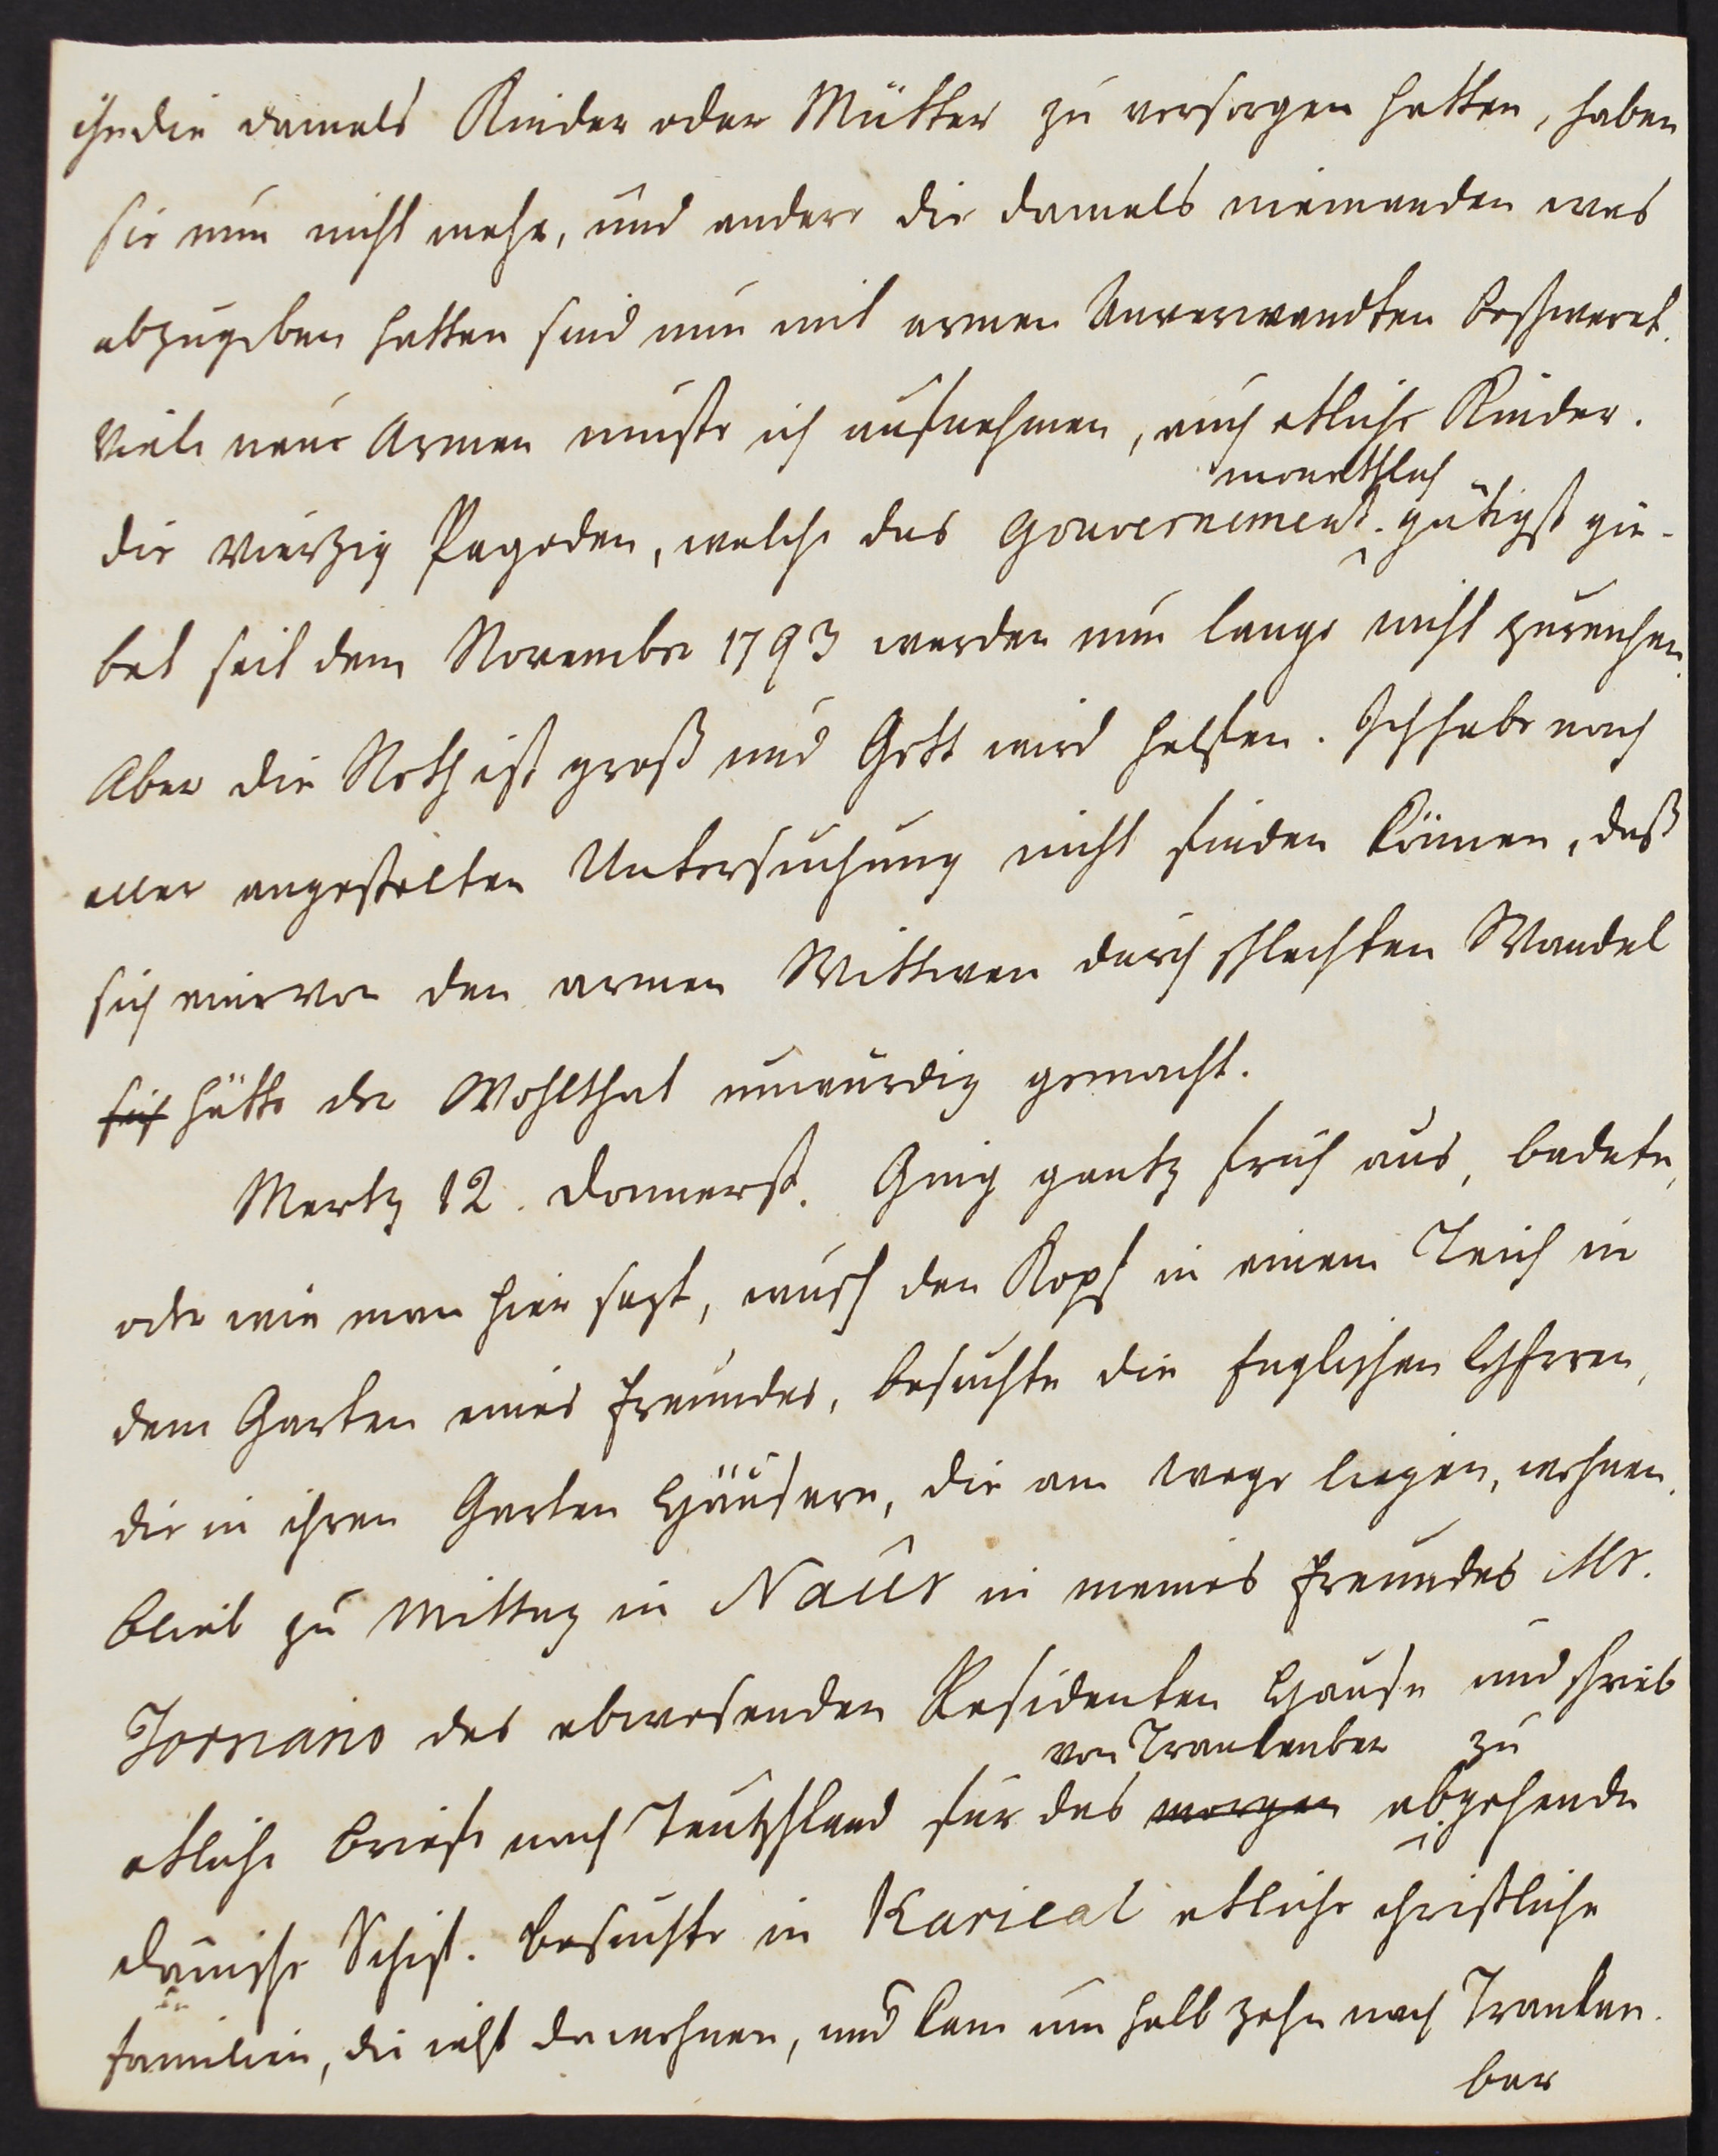 die damals Kinder oder Mütter zu versorgen hatten, haben
sie nun nicht mehr, und andere die damals niemanden was
abzugeben hatten sind nun mit armen Anverwandten beschweret.
Viele neue Armen muste ich aufnehmen, auch etliche Kinder.
monathlich
die vierzig Pagoden, welche das Gouvernement gütigst gie-
bet seit dem November 1793 werden nun lange nicht zureichen.
Aber die Noth ist groß und Gott wird helfen. Ich habe nach
aller angestelten Untersuchung nicht finden können, daß
sich eine von den armen Wittwen durch schlechten Wandel
sich hätte der Wohlthat unwürdig gemacht.
Mertz 12. Donnerst. Ging gantz früh aus, badete,
oder wie man hier sagt, wusch den Kopf in einem Teich in
dem Garten eines Freundes, besuchte die Englischen Herren,
die in ihren Garten Häusern, die am Wege liegen, wohnen.
blieb zu Mittag in Naur in meines Freundes Mr.
Tornano des abwesenden Residenten Hause und schrieb
von Trankenbar zu
etliche Briefe nach Teutschland für das morgen abgehende
dänische Schif. besuchte in Karical etliche christliche
Familien, die ietzt da wohnen, und kam um halb zehn nach Tranken-
bar